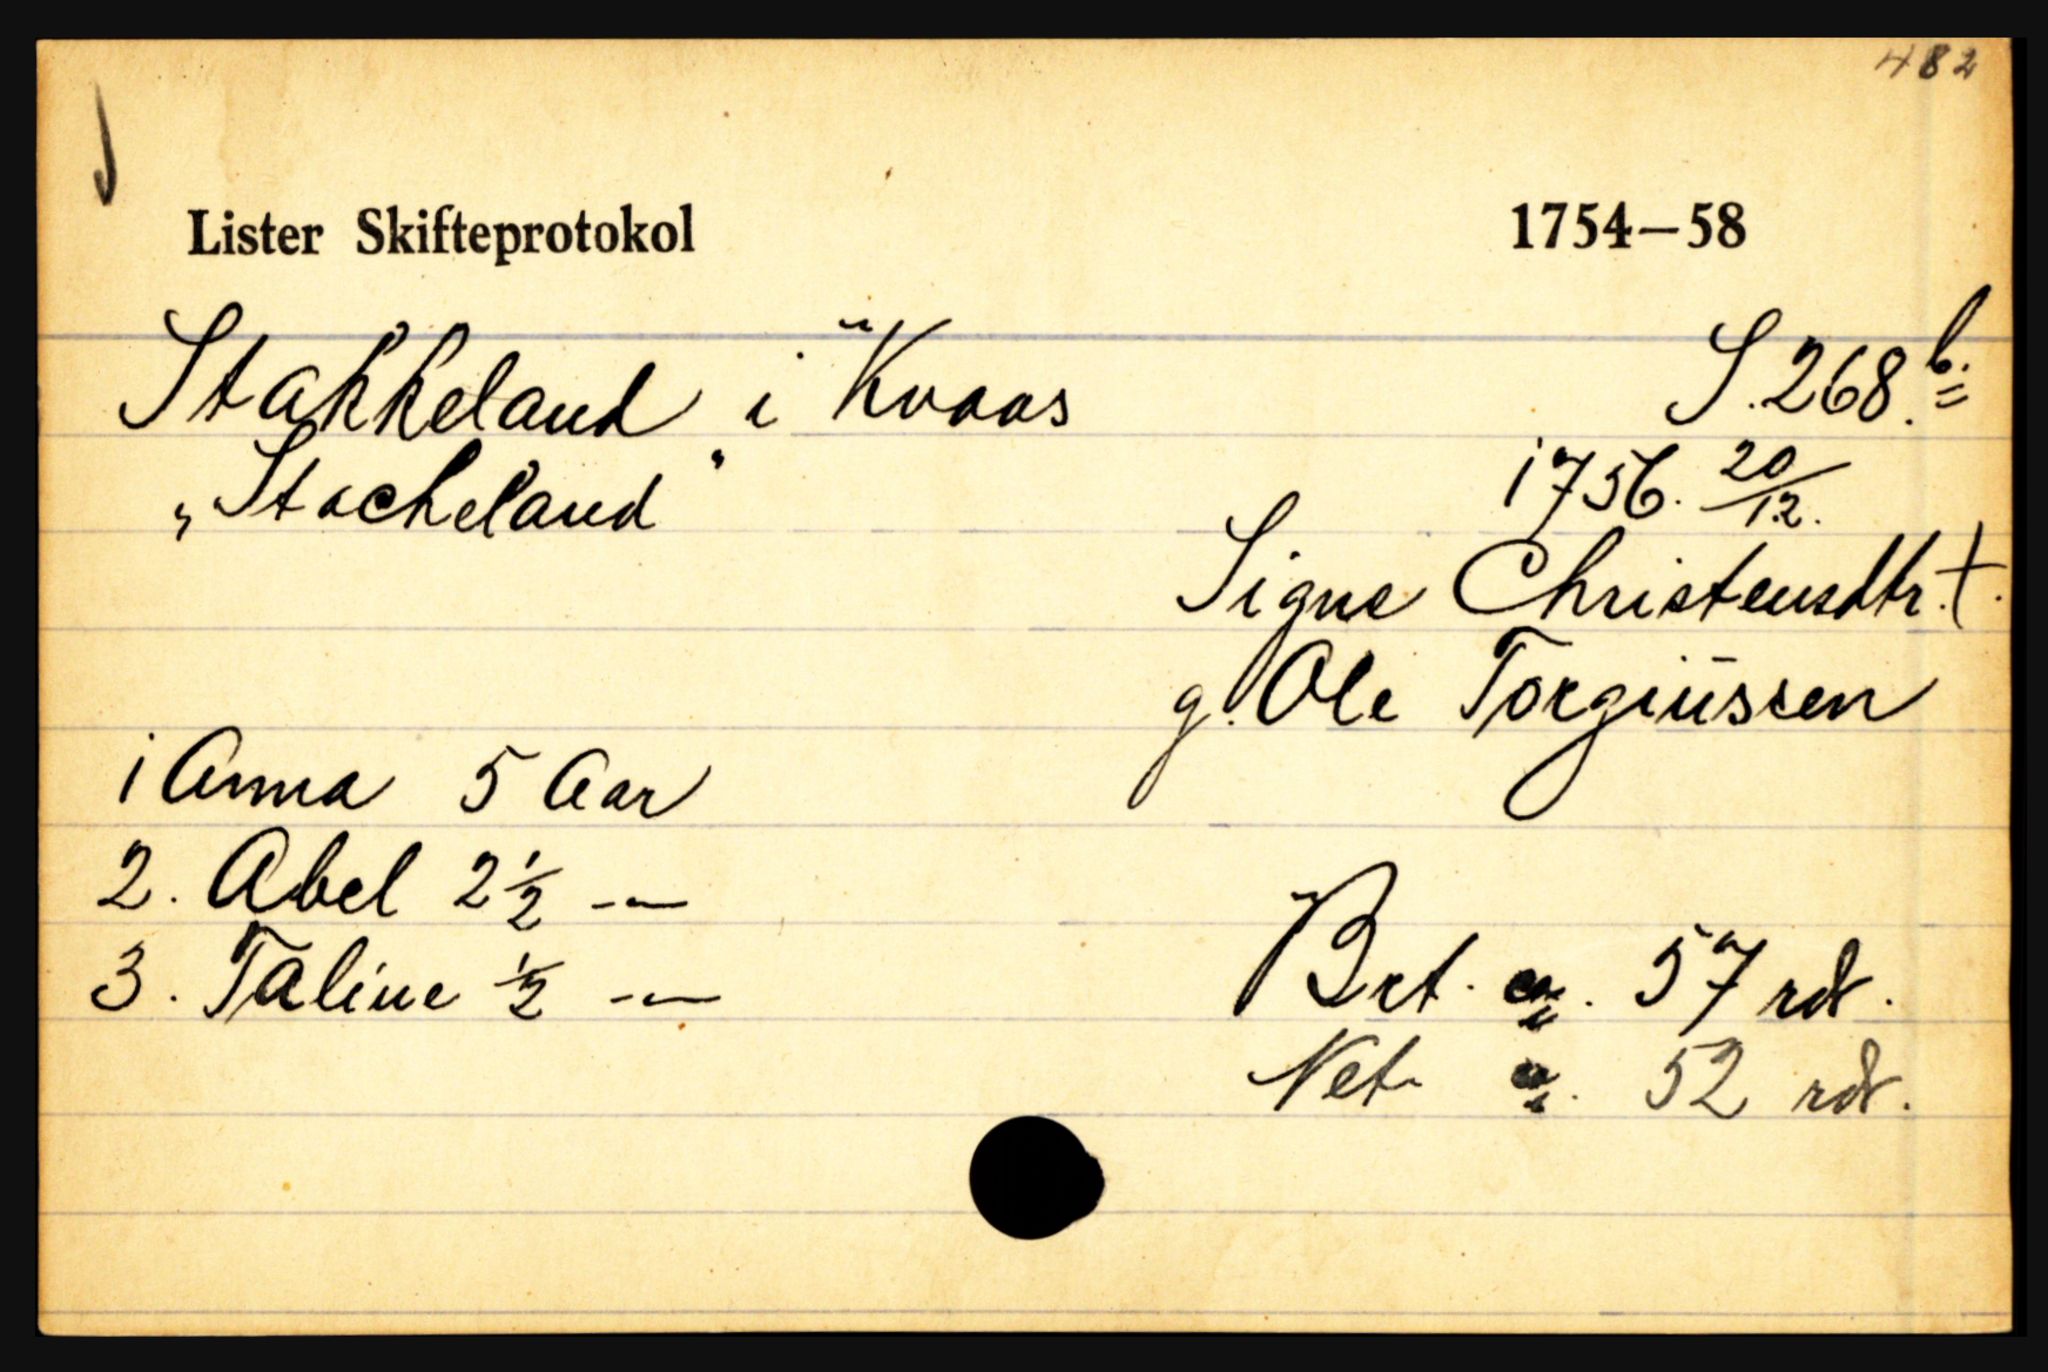 482
Lister Skifteprotokol 1754—58
Stakkeland i Kvaas S. 268.b.
„Stacheland" 1756. 20/12.
Signe Christensdtr. †.
g. Ole Torgiussen
1 Anna 5 Aar
2. Abel 2 1/2 —
3. Taline 1/2 —
Brt. ca. 57 rdr.
Net ca. 52 rdr.